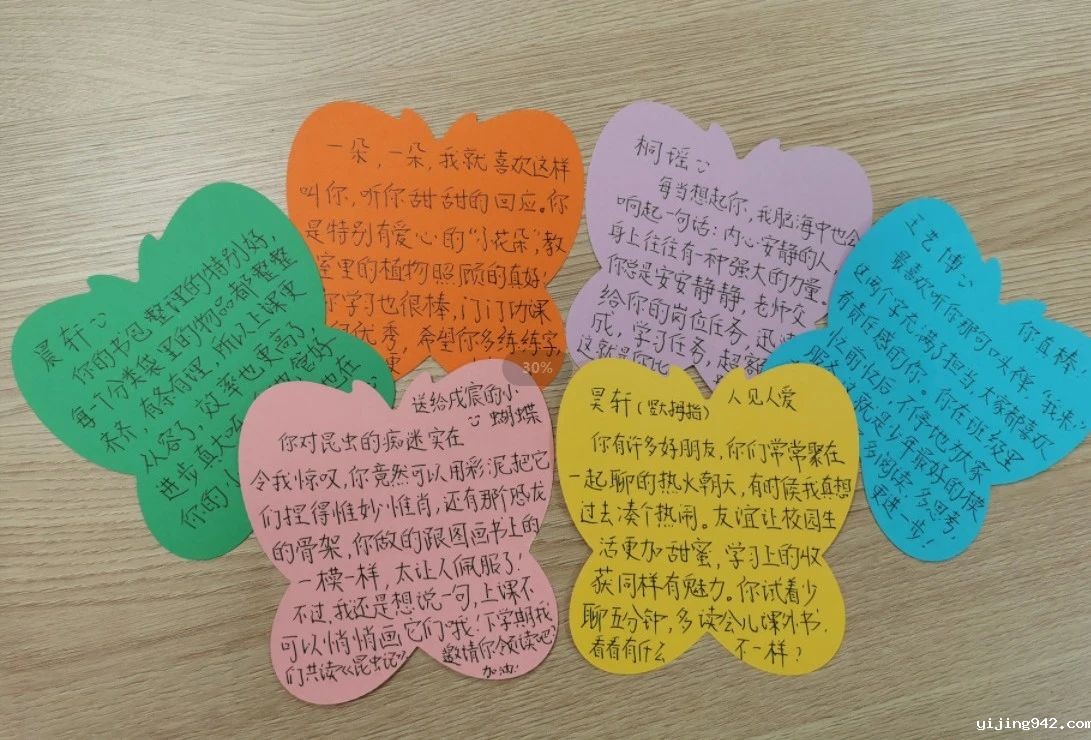 晨轩
你的书包整理的特别好,
每一个分类袋里的物品都整整
齐齐,有条有理,所以上课更
从容了,效率也更高了,
进步真大
你的小
一朵,一朵,我就喜欢这样
叫你,听你甜甜的回应。你
是特别有爱心的“小花朵”,教
室里的植物照顾的真好!
你学习也很棒,门门功课
优秀,希望你多练练字,
更
桐谣
每当想起你,我脑海中也会
响起一句话:内心安静的人,
身上往往有一种强大的力量。
你总是安安静静,老师交
给你的岗位任务,迅速
成,学习任务,超额
这就是你
王艺博
你真棒!
最喜欢听你那句“大禅,我来”
这两个字充满了担当,大家都喜欢
有责任感的你。你在班级里
忆前忆后,不停地为大家
服务,这就是少年最好的模
多阅读,多思考,
更进一步!
送给戌宸的小
蝴蝶
你对昆虫的痴迷实在
令我惊叹,你竟然可以用彩泥把它
们捏得惟妙惟肖,还有那个恐龙
的骨架,你做的跟图画书上的
一模一样,太让人佩服了!
不过,我还是想说一句,上课不
可以悄悄画它们哦!下学期我
邀请你领读吧
们共读《昆虫记》
加油!
昊轩(竖大拇指) 人见人爱
你有许多好朋友,你们常常聚在
一起聊的热火朝天,有时候我真想
过去凑个热闹。友谊让校园生
活更加甜蜜,学习上的收
获同样有魅力。你试着少
聊五分钟,多读会儿课外书,
看看有什么 不一样?
30%
yijing942.com